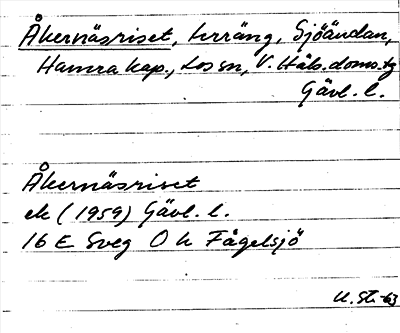 Åkernäsriset, terräng, Sjöändan,
Hamra kap., Los sn, V. Häls. doms. tg
Gävl. l.
Åkernäsriset
ek (1959) Gävl. l.
16 E Sveg O h Fågelsjö
U. St. -63